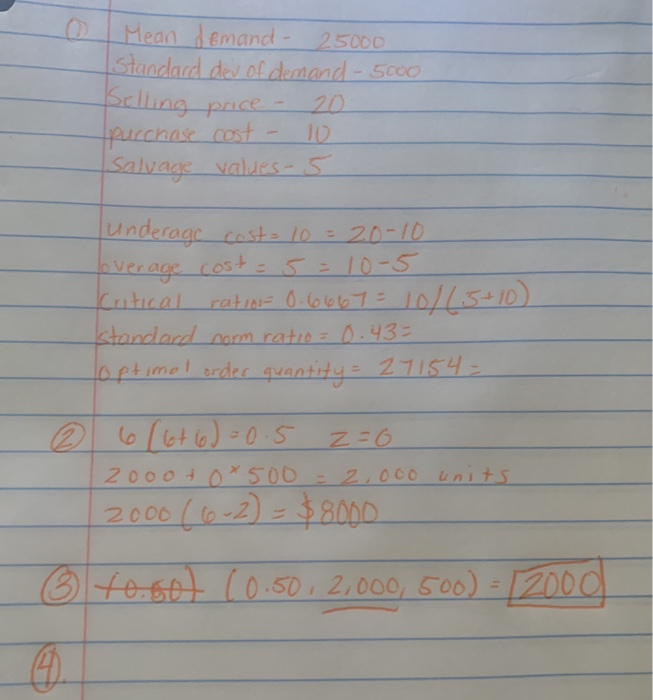 ① Mean demand - 25000
Standard dev of demand - 5000
Selling price - 20
purchase cost - 10
Salvage values - 5
underage cost = 10 = 20-10
overage cost = 5 = 10-5
Critical ratio = 0.6667 = 10/(5+10)
standard norm ratio = 0.43=
optimal order quantity = 27154 =
② 6(6+6)=0.5 Z=0
2000 + 0*500 = 2,000 units
2000(6-2) = $8000
③ (0.50) (0.50, 2,000, 500) = 2000
④.